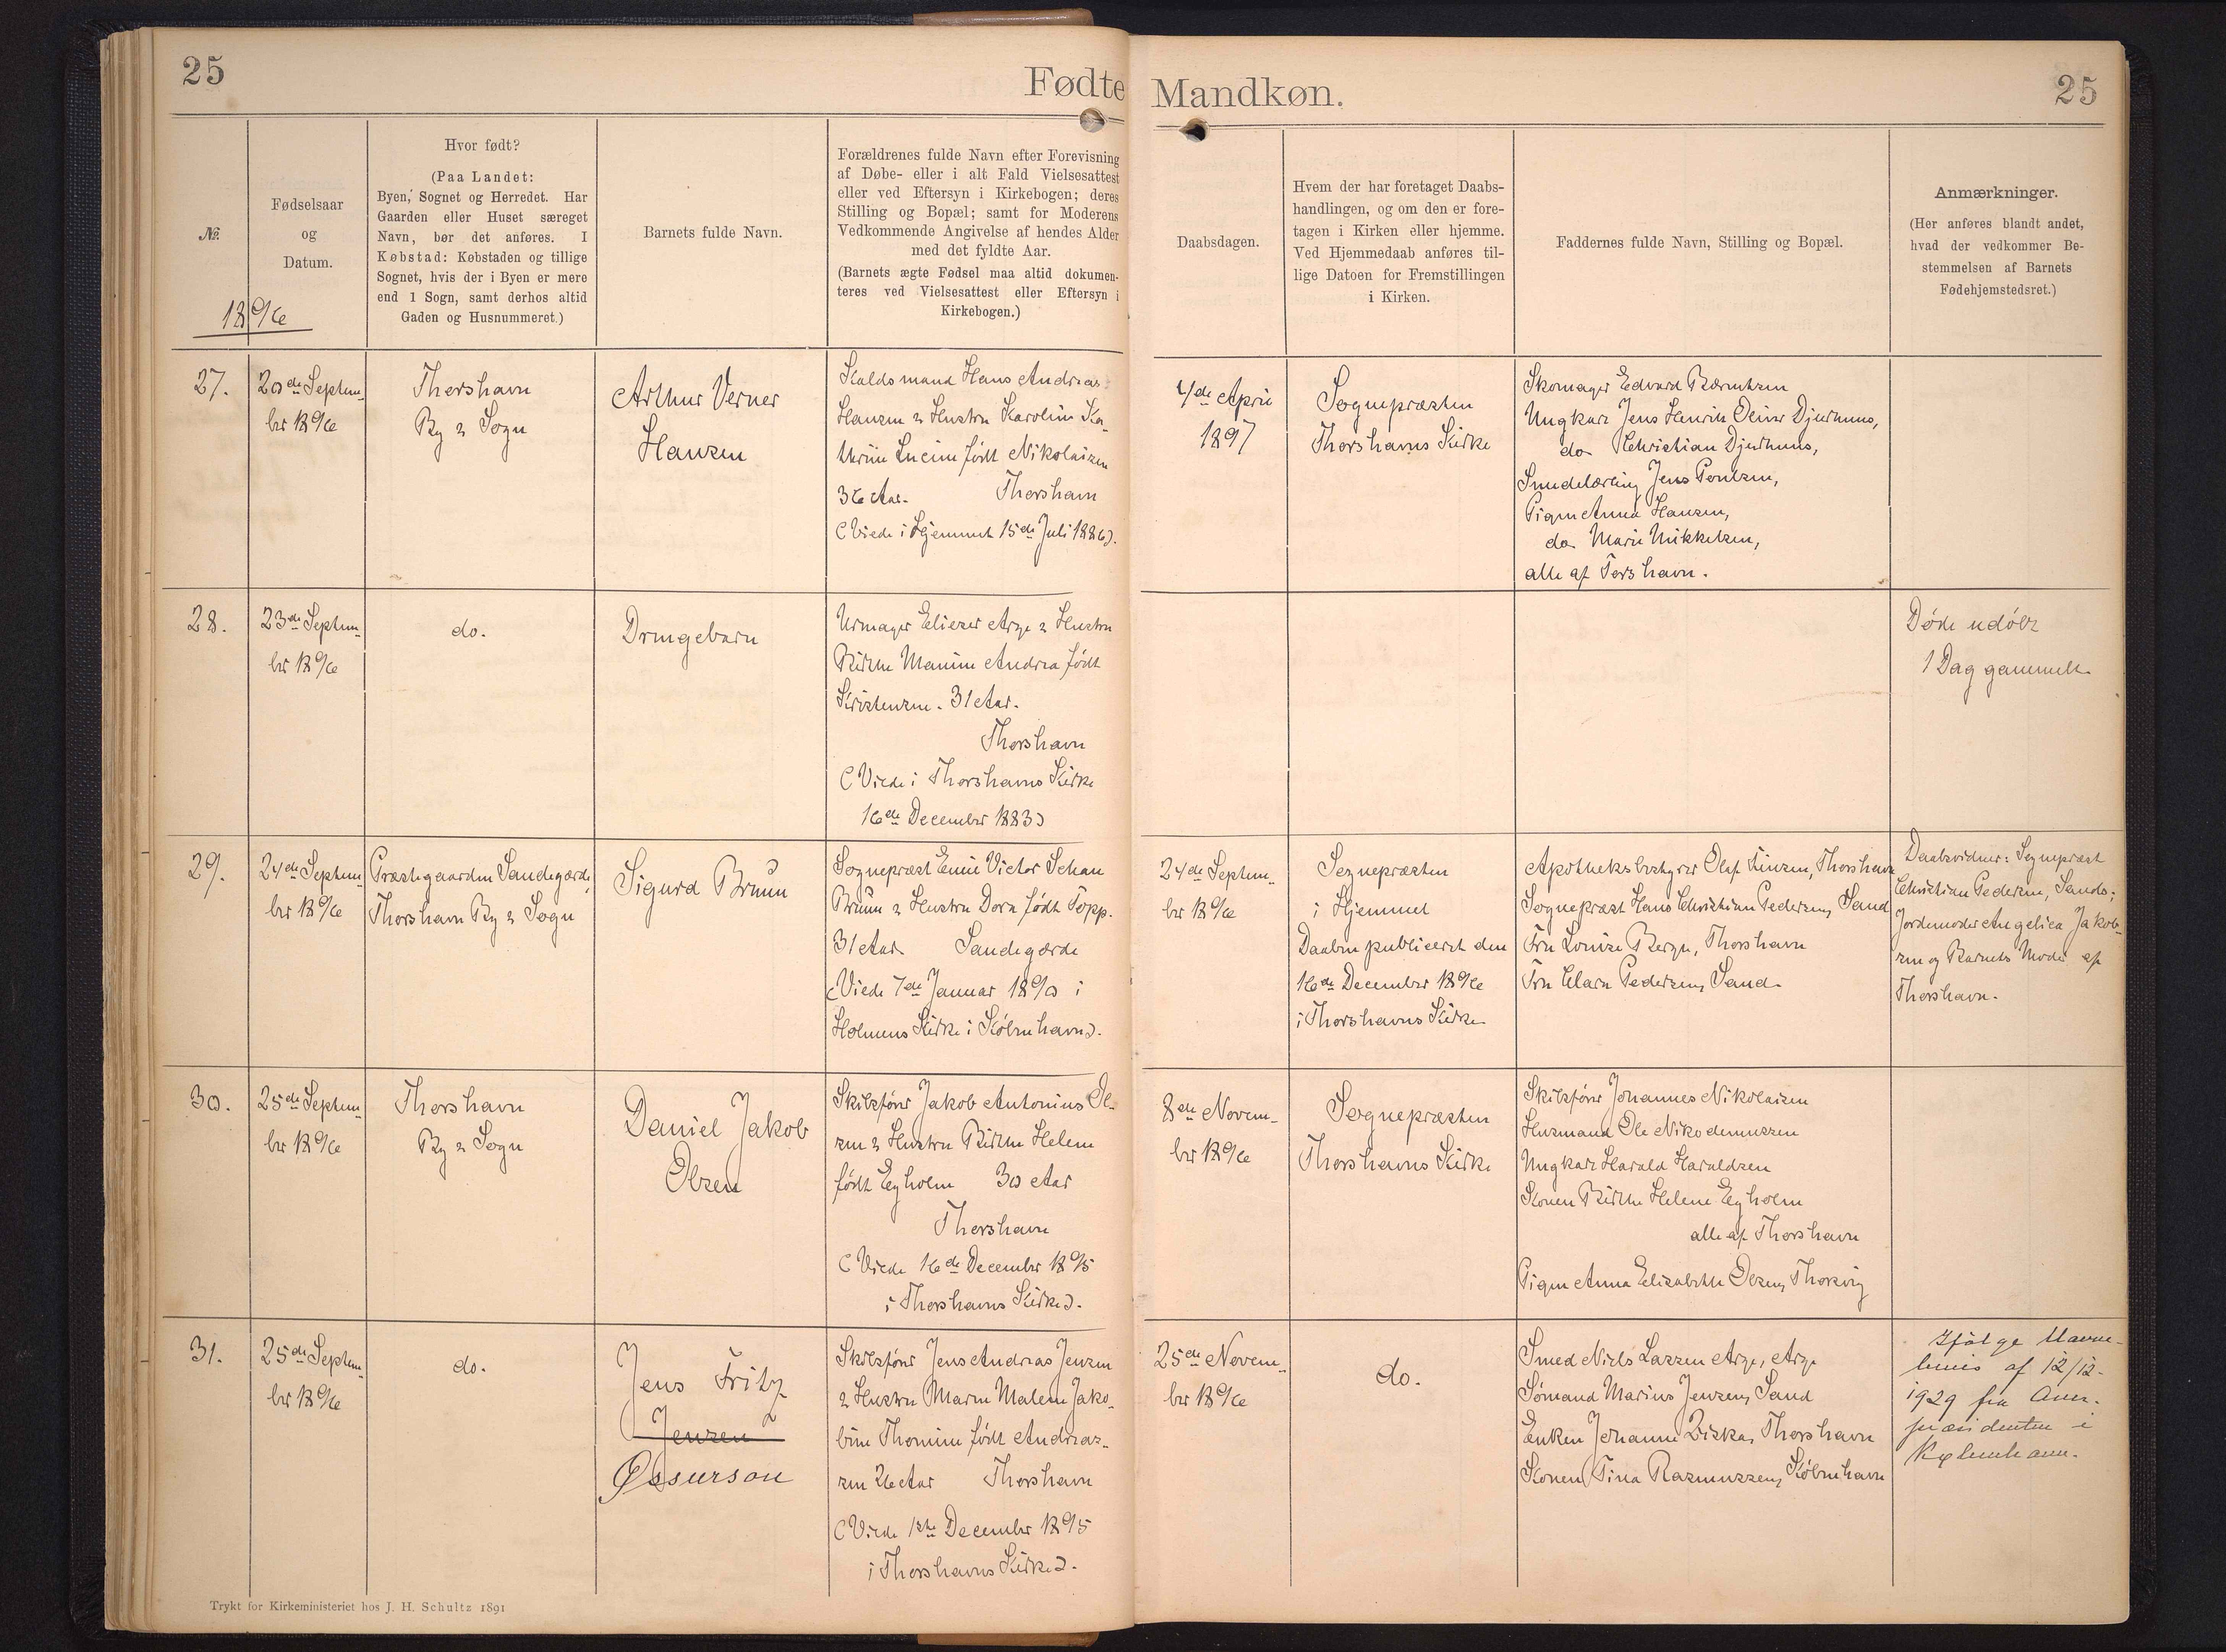 25
Fødte
Mandkøn.
25
№.
1896
Fødselsaar
og
Datum.
Hvor født?
(Paa Landet:
Byen, Sognet og Herredet. Har
Gaarden eller Huset særeget
Navn, bør det anføres. I
Købstad: Købstaden og tillige
Sognet, hvis der i Byen er mere
end 1 Sogn, samt derhos altid
Gaden og Husnummeret.)
Barnets fulde Navn.
Forældrenes fulde Navn efter Forevisning
af Døbe- eller i alt Fald Vielsesattest
eller ved Eftersyn i Kirkebogen; deres
Stilling og Bopæl; samt for Moderens
Vedkommende Angivelse af hendes Alder
med det fyldte Aar.
(Barnets ægte Fødsel maa altid dokumen-
teres ved Vielsesattest eller Eftersyn i
Kirkebogen.)
Daabsdagen.
Hvem der har foretaget Daabs-
handlingen, og om den er fore-
tagen i Kirken eller hjemme.
Ved Hjemmedaab anføres til-
lige Datoen for Fremstillingen
i Kirken.
Faddernes fulde Navn, Stilling og Bopæl.
Anmærkninger.
(Her anføres blandt andet,
hvad der vedkommer Be-
stemmelsen af Barnets
Fødehjemstedsret.)
27.
20de Septem-
ber 1896
Thorshavn
By & Sogn
Arthur Verner
Hansen
Hans Andreas
Hansen & Hustru Karoline Ka-
thrine Lucine født Nikolaisen
36 Aar. Thorshavn
(Viede i Hjemmet 15de Juli 1886).
4de April
1897
Sognepræsten
Thorshavns Kirke
Skomager Edvard Bærentsen
Ungkarl Jens Henrik Oliver Djurhuus,
do Christian Djurhuus,
Smedelærling Jens Poulsen,
Pigen Anna Hansen,
do. Marie Mikkelsen,
alle af Torshavn.
28.
23de Septem-
ber 1896
do.
Drengebarn
Urmager Eliezer Arge & Hustru
Birthe Manine Andrea født
Kristensen. 31 Aar.
Thorshavn
(Viede i Thorshavns Kirke
16de December 1883)
Døde udøbt
1 Dag gammelt.
29.
24de Septem-
ber 1896
Præstegaarden Sandegærde,
Thorshavn By & Sogn
Sigurd Bruun
Sognepræst Emil Victor Schau
Bruun & Hustru Dora født Topp.
31 Aar. Sandegærde
(Viede 7de Januar 1890 i
Holmens Kirke i København).
24de Septem-
ber 1896
Sognepræsten
i Hjemmet
Daaben publiceret den
16de December 1896
i Thorshavns Kirke
Apotheksbestyrer Olaf Finsen, Thorshavn
Sognepræst Hans Christian Pedersen, Sand
Fru Louise Bergn, Thorshavn
Fru Clara Pedersen, Sand.
Daabsvidner: Sognepræst
Christian Pedersen, Sando;
Jordemoder Angelica Jakob-
sen og Barnets Moder af
Thorshavn.
30.
25de Septem-
ber 1896
Thorshavn
By & Sogn
Daniel Jakob
Olsen
Skibsfører Jakob Antonius Ol-
sen & Hustru Birthe Helene
født Eyholm 30 Aar
Thorshavn
(Viede 16de December 1895
i Thorshavns Kirke).
8de Novem-
ber 1896
Sognepræsten
Thorshavns Kirke
Skibsfører Johannes Nikolaisen
Husmand Ole Nikodemussen
Ungkarl Harald Haraldsen
Konen Birthe Helene Eyholm
alle af Thorshavn
Pigen Anna Elisabeth Olsen, Thorsvig
31.
25de Septem-
ber 1896
do.
Jens Fritz
Jensen
Øssurson
Skibsfører Jens Andreas Jensen
& Hustru Maren Malene Jako-
bine Thomine født Andreas-
sen 26 Aar Thorshavn
(Viede 1ste December 1895
i Thorshavns Kirke).
25de Novem-
ber 1896
do.
Smed Niels Lassen Arge, Arge
Sømand Marius Jensen, Sand
Enken Johanne Biskas, Thorshavn
Konen Tina Rasmussen, København
Ifølge Navne-
bevis af 12/12-
1929 fra Over-
præsidenten i
København.
Trykt for Kirkeministeriet hos J. H. Schultz 1891